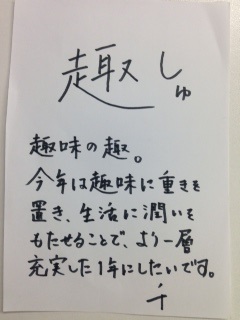 趣 しゅ
趣味の趣。
今年は趣味に重きを
置き、生活に潤いを
もたせることで、より一層
充実した1年にしたいです。
千